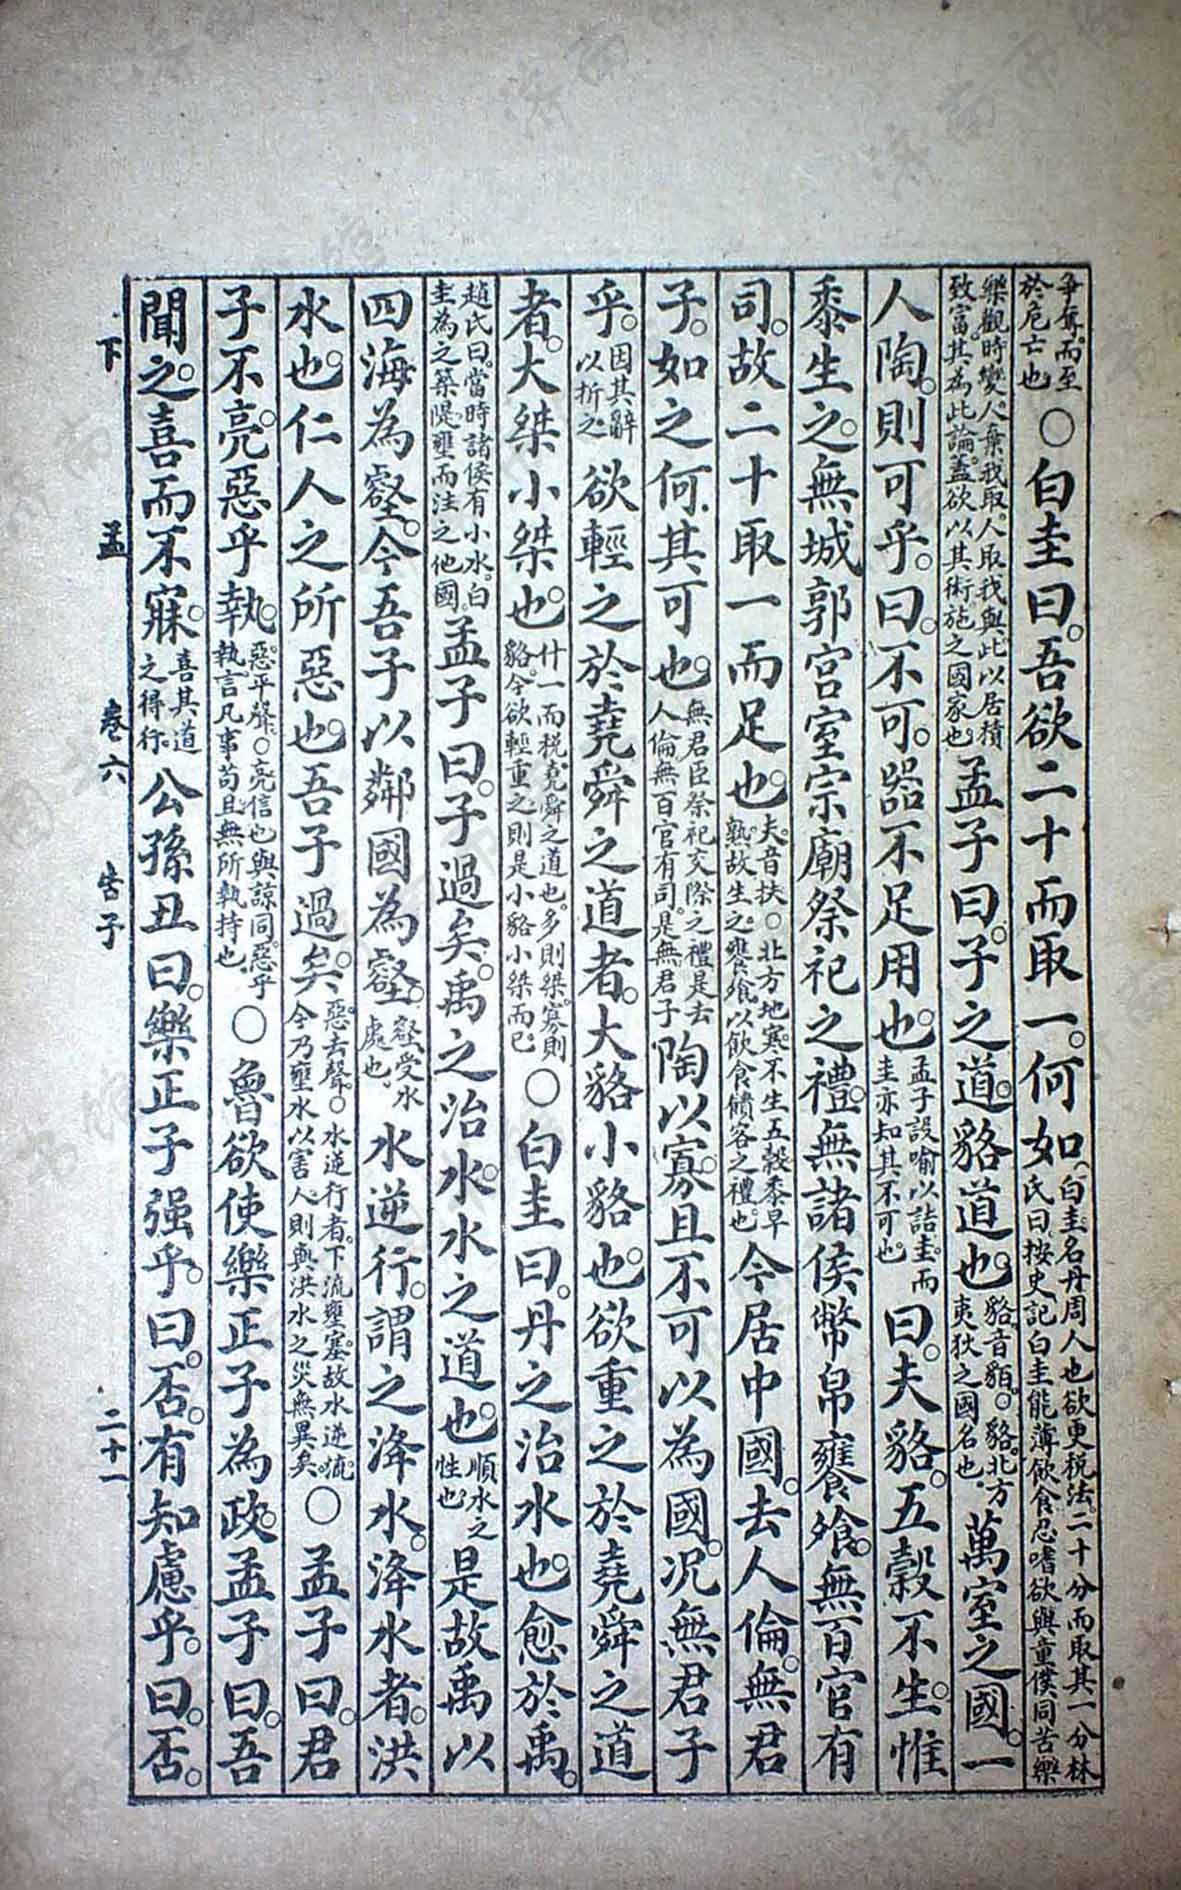 爭奪。而至於危亡也。○白圭曰。吾欲二十而取一。何如。白圭名丹周人也欲更稅法。二十分而取其一分林氏曰。按史記白圭能薄飲食忍嗜欲與童僕同苦樂
樂觀時變人棄我取。人取我與。此以居積致富。其為此論。蓋欲以其術施之國家也。孟子曰。子之道。貉道也。貉音貊。○貉。北方夷狄之國名也。萬室之國。一
人陶。則可乎。曰。不可。器不足用也。孟子設喻以詰圭。而圭亦知其不可也。曰。夫貉。五穀不生。惟
黍生之。無城郭宮室宗廟祭祀之禮。無諸侯幣帛饔飧。無百官有
司。故二十取一而足也。夫音扶。○北方地寒。不生五穀黍早熟。故生之。饔飧。以飲食饋客之禮也。今居中國。去人倫。無君
子。如之何其可也。無君臣祭祀交際之禮是去人倫。無百官有司。是無君子陶以寡。且不可以為國。況無君子
乎。因其辭以折之。欲輕之於堯舜之道者。大貉小貉也。欲重之於堯舜之道
者。大桀小桀也。什一而稅。堯舜之道也。多則桀。寡則貉。今欲輕重之。則是小貉小桀而已。○白圭曰。丹之治水也。愈於禹。
趙氏曰。當時諸侯有小水。白圭為之築隄。壅而注之他國。孟子曰。子過矣。禹之治水。水之道也。順水之性也。是故禹以
四海為壑。今吾子以鄰國為壑。壑受水處也。水逆行。謂之洚水。洚水者。洪
水也。仁人之所惡也。吾子過矣。惡去聲。○水逆行者。下流壅塞。故水逆流。今乃壅水以害人。則與洪水之災無異矣。○孟子曰。君
子不亮。惡乎執。惡。平聲。○亮信也與諒同。惡乎執言凡事苟且無所執持也○魯欲使樂正子為政。孟子曰。吾
聞之。喜而不寐。喜其道之得行。公孫丑曰。樂正子強乎。曰。否。有知慮乎。曰。否。
下 孟 卷六 告子 二十一